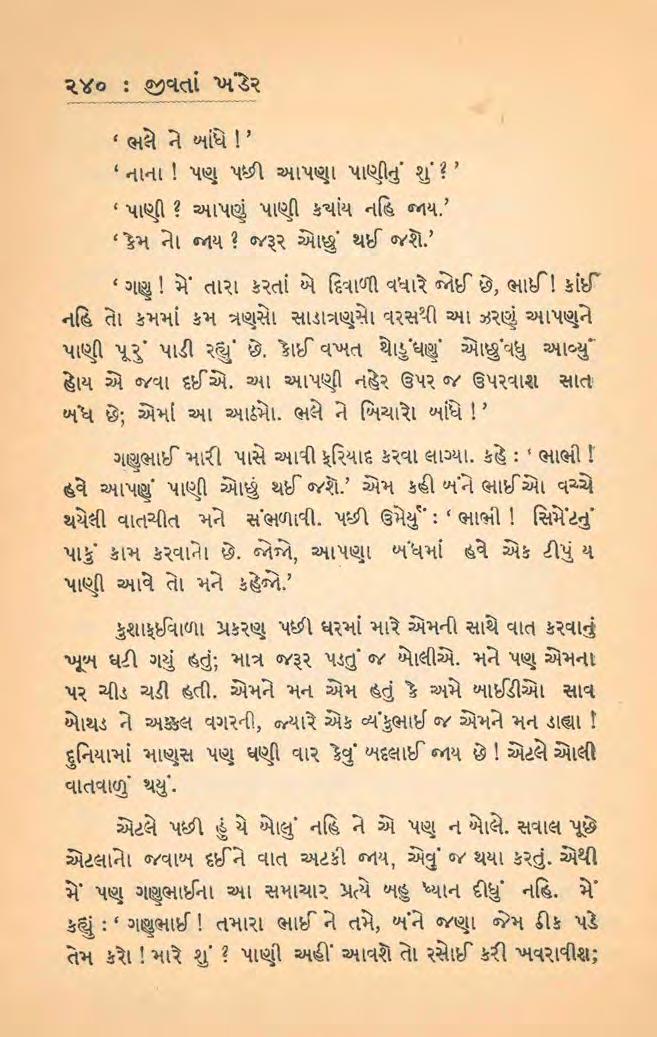 ૨૪૦ : જીવતાં ખંડેર
‘ ભલે ને બાંધે ! ’
‘ નાના ! પણ પછી આપણા પાણીનું શું ? ’
‘ પાણી ? આપણું પાણી કયાંય નહિ જાય.’
‘ કેમ નો જાય ? જરૂર ઓછું થઈ જશે.’
‘ ગણુ ! મેં તારા કરતાં બે દિવાળી વધારે જોઈ છે, ભાઈ ! કાંઈ
નહિ તો કમમાં કમ ત્રણસો સાડાત્રણસો વરસથી આ ઝરણું આપણને
પાણી પૂરું પાડી રહ્યું છે. કોઈ વખત થોડુંઘણું ઓછુંવધુ આવ્યું
હોય એ જવા દઈએ. આ આપણી નહેર ઉપર જ ઉપરવાશ સાત
બંધ છે; એમાં આ આઠમો. ભલે ને બિચારો બાંધે ! ’
ગણુભાઈ મારી પાસે આવી ફરિયાદ કરવા લાગ્યા. કહે : ‘ ભાભી !
હવે આપણું પાણી ઓછું થઈ જશે.’ એમ કહી બંને ભાઈઓ વચ્ચે
થયેલી વાતચીત મને સંભળાવી. પછી ઉમેર્યું : ‘ ભાભી ! સિમેંટનું
પાકું કામ કરવાનો છે. જોજો, આપણા બંધમાં હવે એક ટીપું ય
પાણી આવે તો મને કહેજો.’
કુશાકફઈવાળા પ્રકરણ પછી ઘરમાં મારે એમની સાથે વાત કરવાનું
ખૂબ ઘટી ગયું હતું; માત્ર જરૂર પડતું જ બોલીએ. મને પણ એમના
પર ચીડ ચડી હતી. એમને મન એમ હતું કે અમે બાઈડીઓ સાવ
બોથડ ને અક્કલ વગરની, જ્યારે એક વ્યંકુભાઈ જ એમને મન ડાહ્યા !
દુનિયામાં માણસ પણ ઘણી વાર કેવું બદલાઈ જાય છે ! એટલે ઓલી
વાતવાળું થયું.
એટલે પછી હું યે બોલું નહિ ને એ પણ ન બોલે. સવાલ પૂછે
એટલાનો જવાબ દઈને વાત અટકી જાય, એવું જ થયા કરતું. એથી
મેં પણ ગણુભાઈના આ સમાચાર પ્રત્યે બહુ ધ્યાન દીધું નહિ. મેં
કહ્યું : ‘ ગણુભાઈ ! તમારા ભાઈ ને તમે, બંને જણા જેમ ઠીક પડે
તેમ કરો ! મારે શું ? પાણી અહીં આવશે તો રસોઈ કરી ખવરાવીશ;